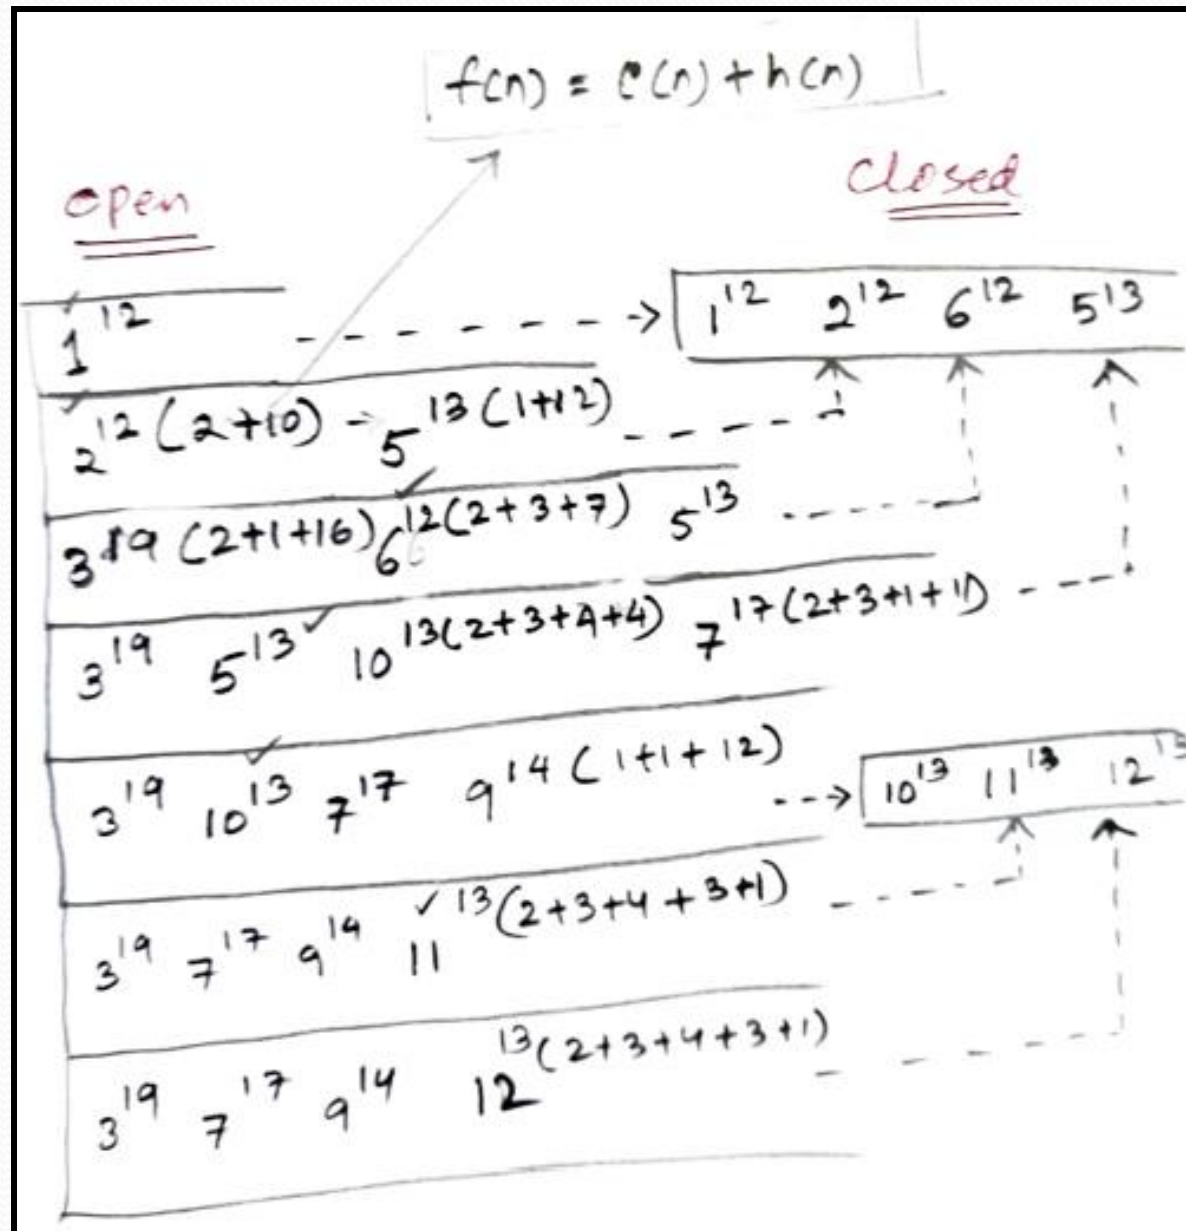 f(n) = e(n) + h(n)
open
closed
1^12
1^12 2^12 6^12 5^13
2^12 (2+10) - 5^13 (1+12)
3^19 (2+1+16) 6^12 (2+3+7) 5^13
3^19 5^13 ✓ 10^13 (2+3+4+4) 7^17 (2+3+1+11)
3^19 10^13 7^17 9^14 (1+1+12)
10^13 11^13 12^13
3^19 7^17 9^14 ✓ 11^13 (2+3+4+3+1)
3^19 7^17 9^14 12^13 (2+3+4+3+1)